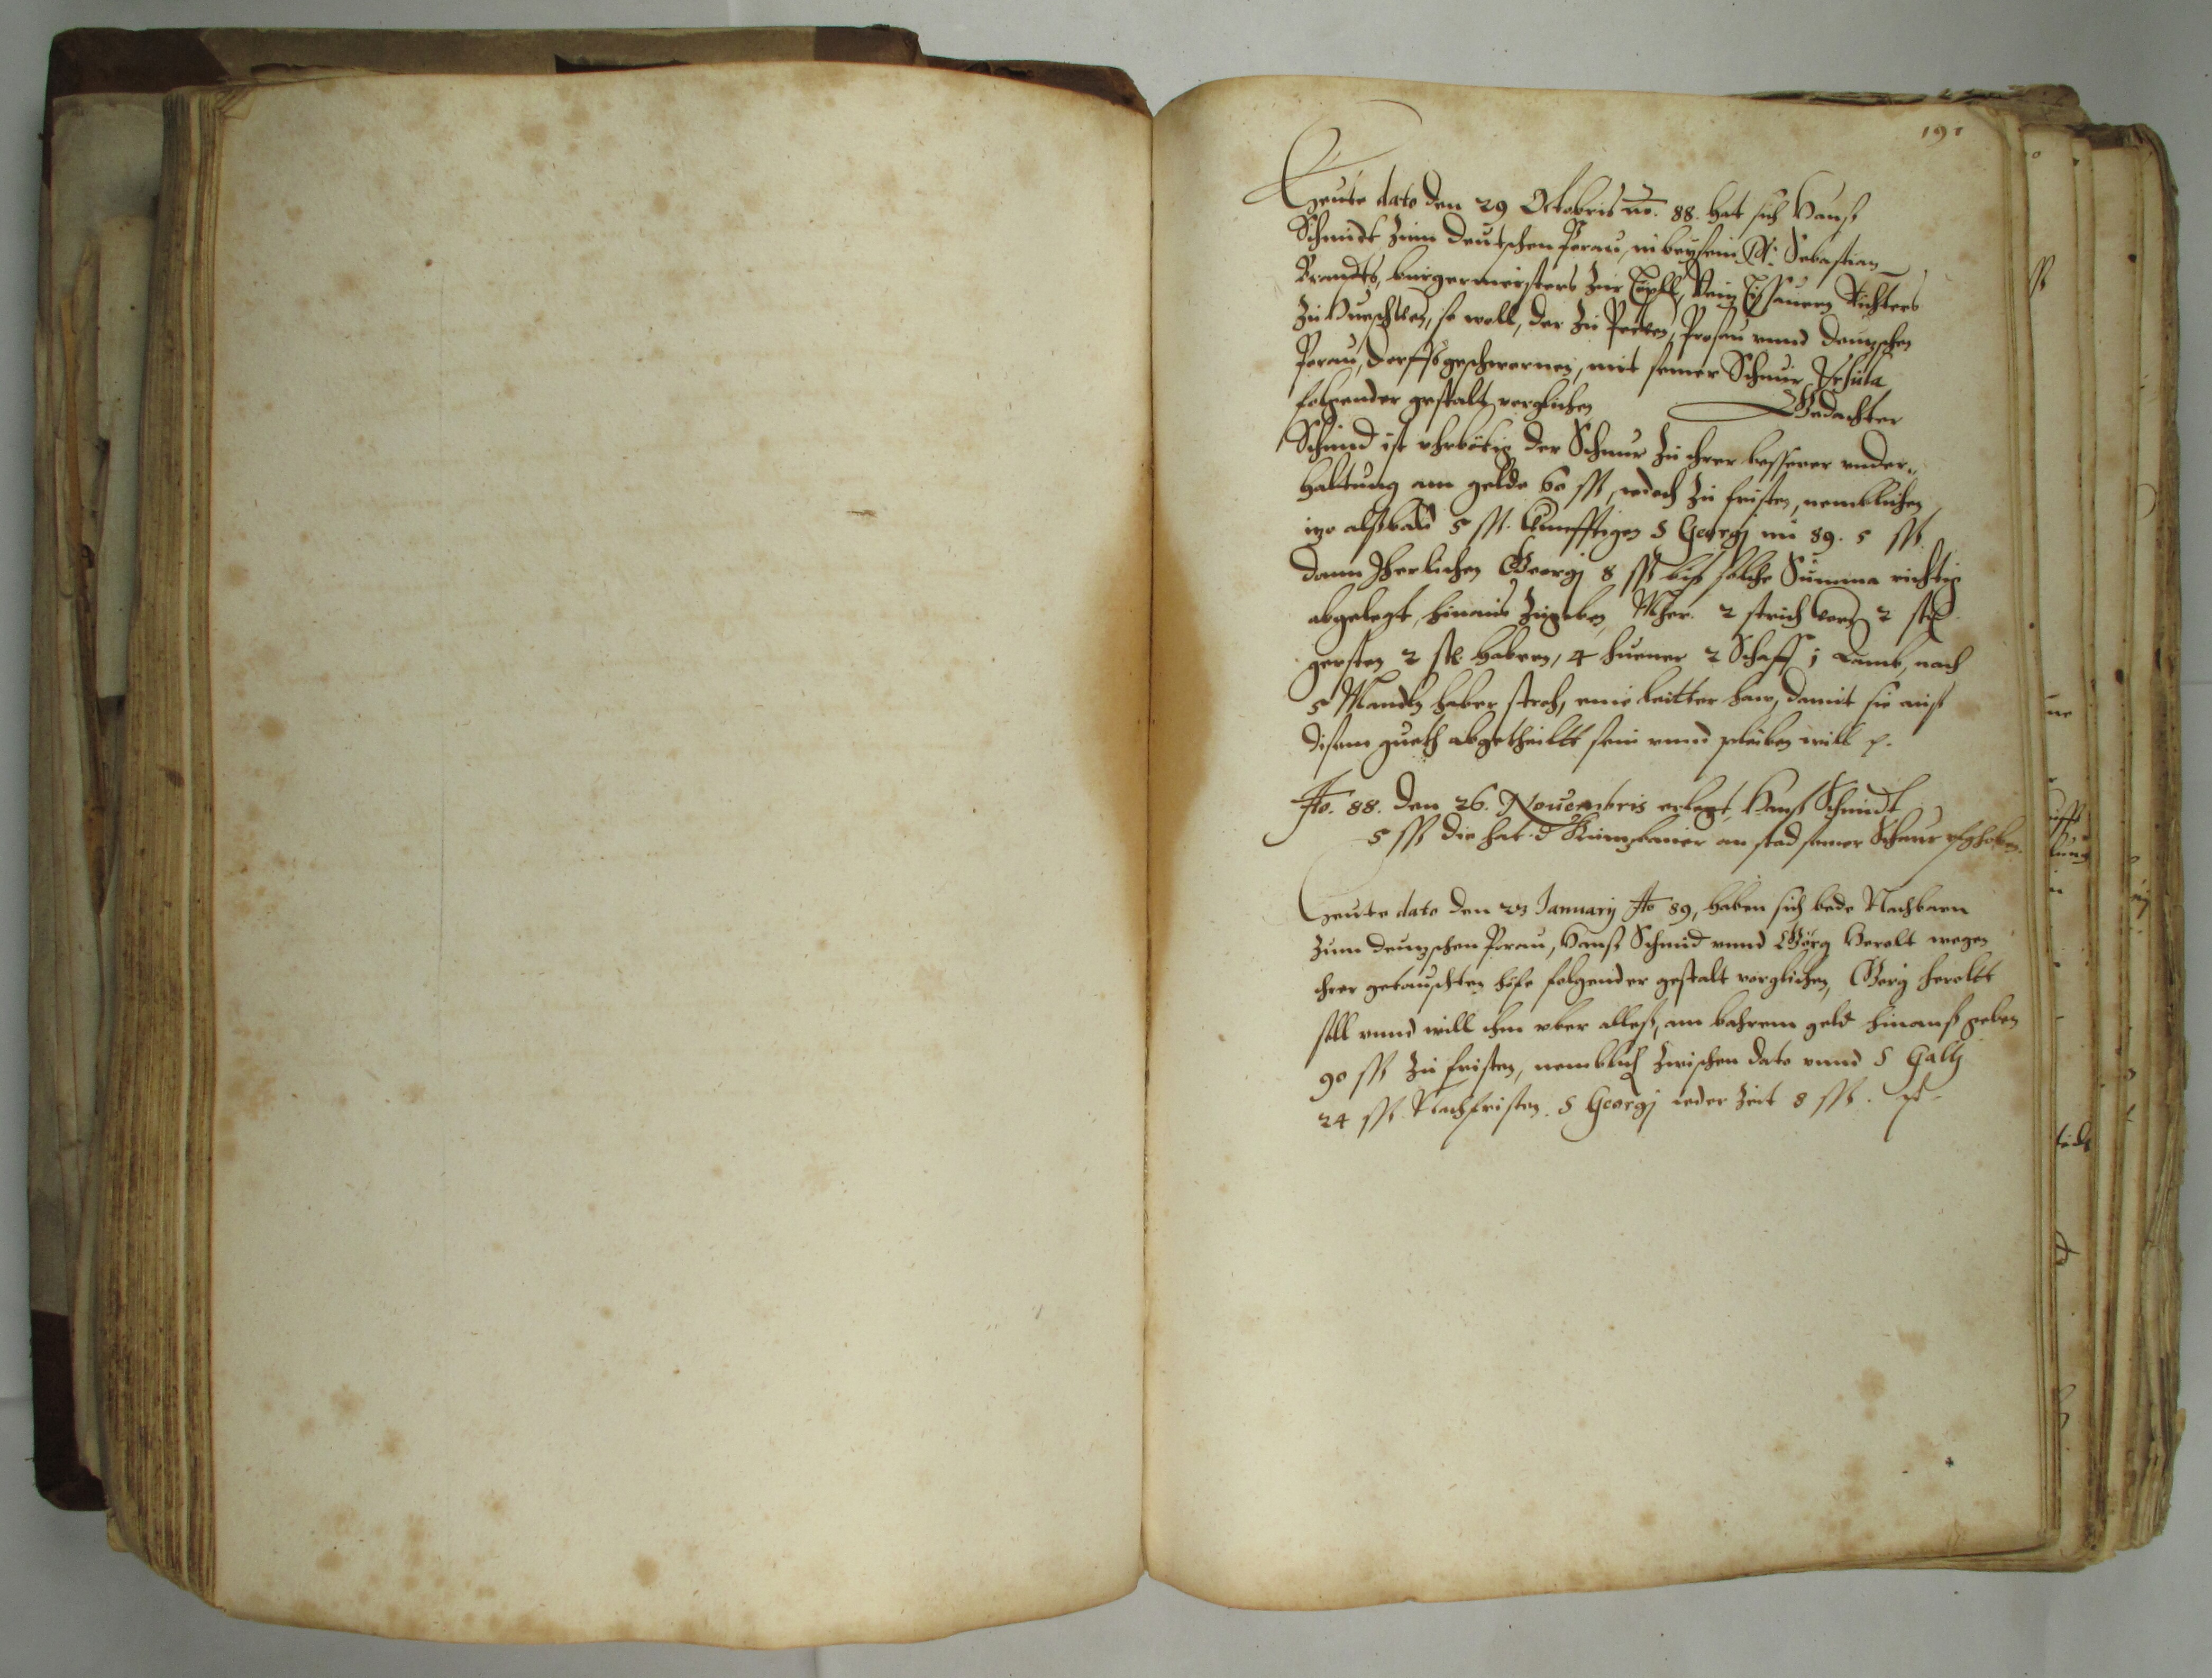 191
Heute dato den 29 Octobris no. 88. hat sich Hanß
Schmidt zum deutschen Porau, in beysein H: Sebastian
Brandts, burgermeisters zur Töpll, Richters
zu, so woll, der zu, Prosau vnnd deutschen
Porau, dorffsgeschwornen, mit seiner Schnur Vrsula
folgender gestalt verglichen Gedachter
Schmid ist vhrbötig der Schnur zu ihrer besserer vnder„
haltung am gelde 60 ßß, iedoch zu fristen, nemblichen
izo alßbald 5 ßß. kunfftigen S Georgj im 89. 5 ßß
dann Jherlichen Georgj 8 ßß biß solche Summa richtig
abgelegt, hinaus zugeben, Mher. 2 strich korn 2 str
gersten 2 str. habern, 4 huener 2 Schaff 1 Lamb, nach
5 Mandln haber stroh, eine leitter haw, damit sie auß
disem gueth abgetheiltt sein vnnd pleiben will p.
Ao. 88. den 26. Nouembris erlegt Hanß Schmidt
5 ßß die hat d an stad seiner Schnur
Heute dato den 23 January Ao 89, haben sich bede Nachbarn
zum deutzschen Porau, Hanß Schmid vnnd Görg Herolt wegen
ihrer getauschten höfe folgender gestalt verglichen, Görg heroltt
soll vnnd will ihm vber alleß, am bahrem geld hinauß geben
90 ßß zu fristen, nemblich zwischen dato vnnd S Gallj
24 ßß. Nachfristen. S Georgj ieder Zeit 8 ßß.